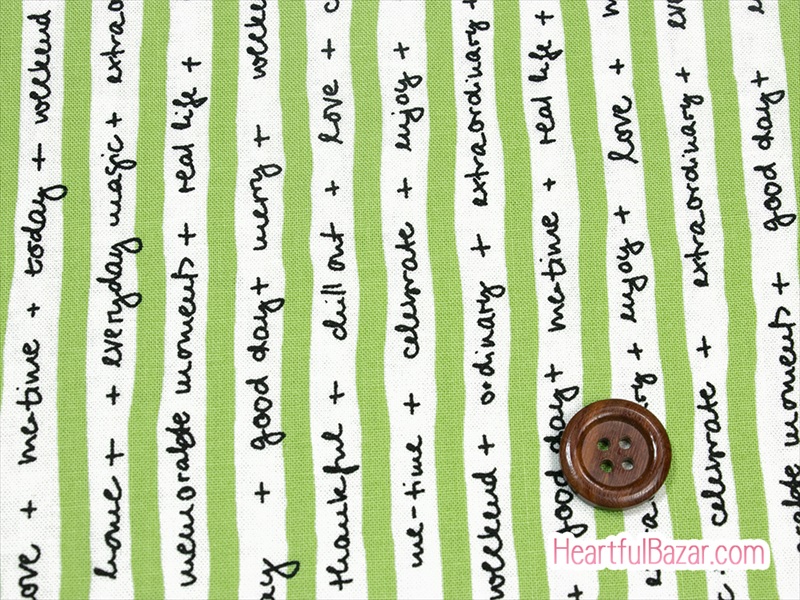 love + me-time + today + weekend
home + + everyday magic + extrao
memorable moments + real life +
ay + good day + merry + weeke
thankful + chill out + love + c
me-time + celebrate + enjoy +
weekend + ordinary + extraordinary +
good day + me-time + real life +
ry + enjoy + love +
celebrate + extraordinary +
orable moments + good day +
HeartfulBazar.com